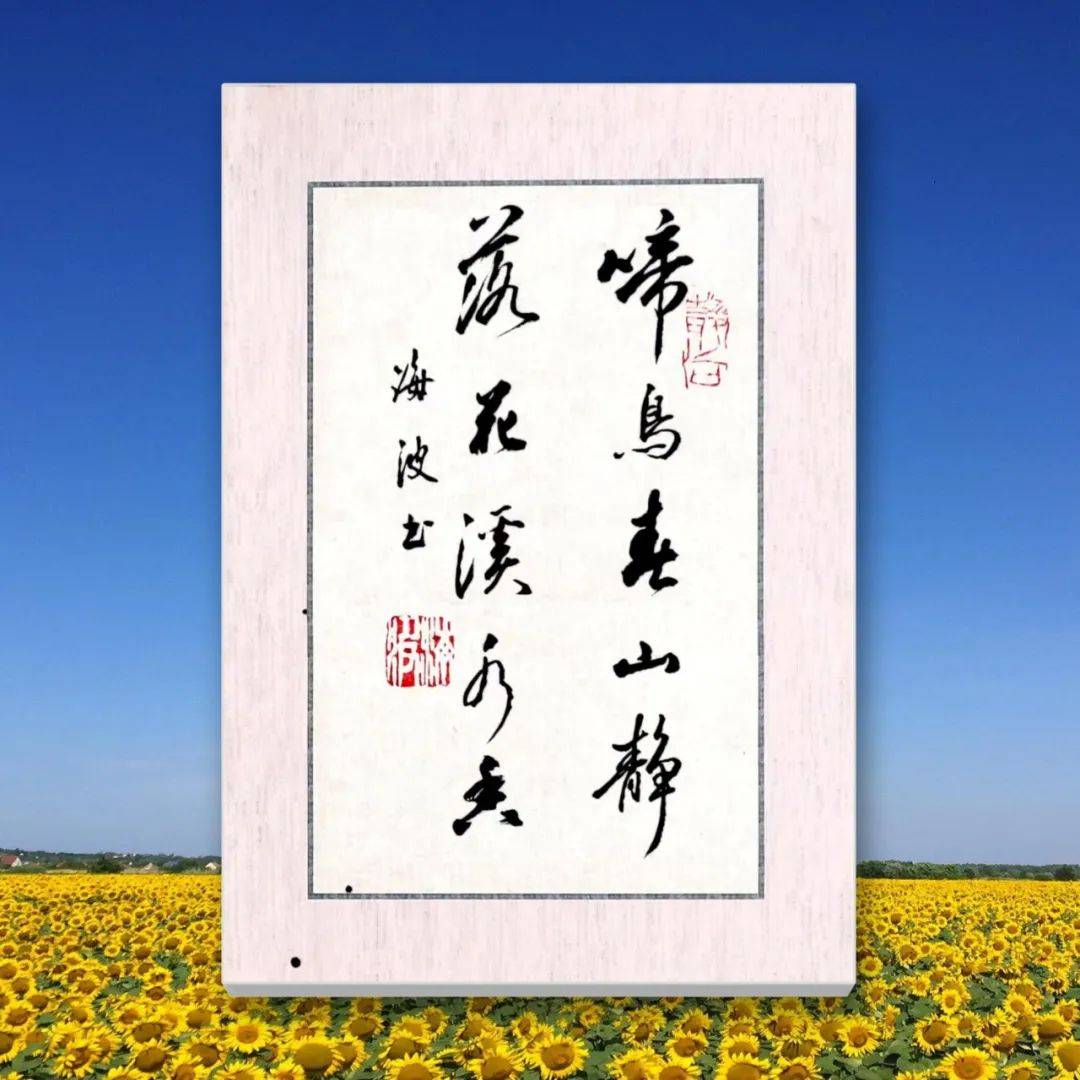 啼鳥春山静
落花溪水香
海波书